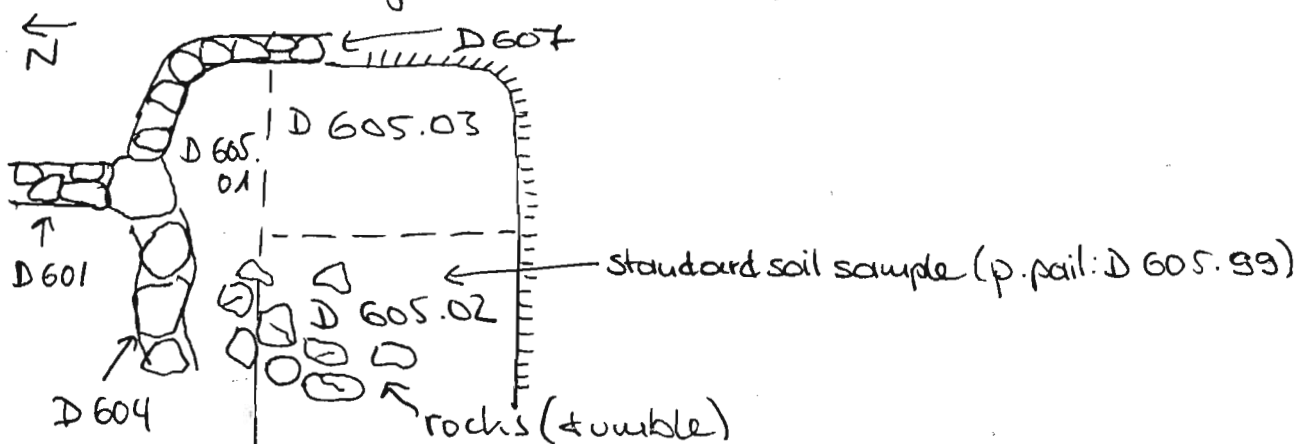 N
D 607
D 605.03
D 605.
01
D 601
standard soil sample (p.pail: D 605.99)
D 605.02
D 604
rocks (tumble)